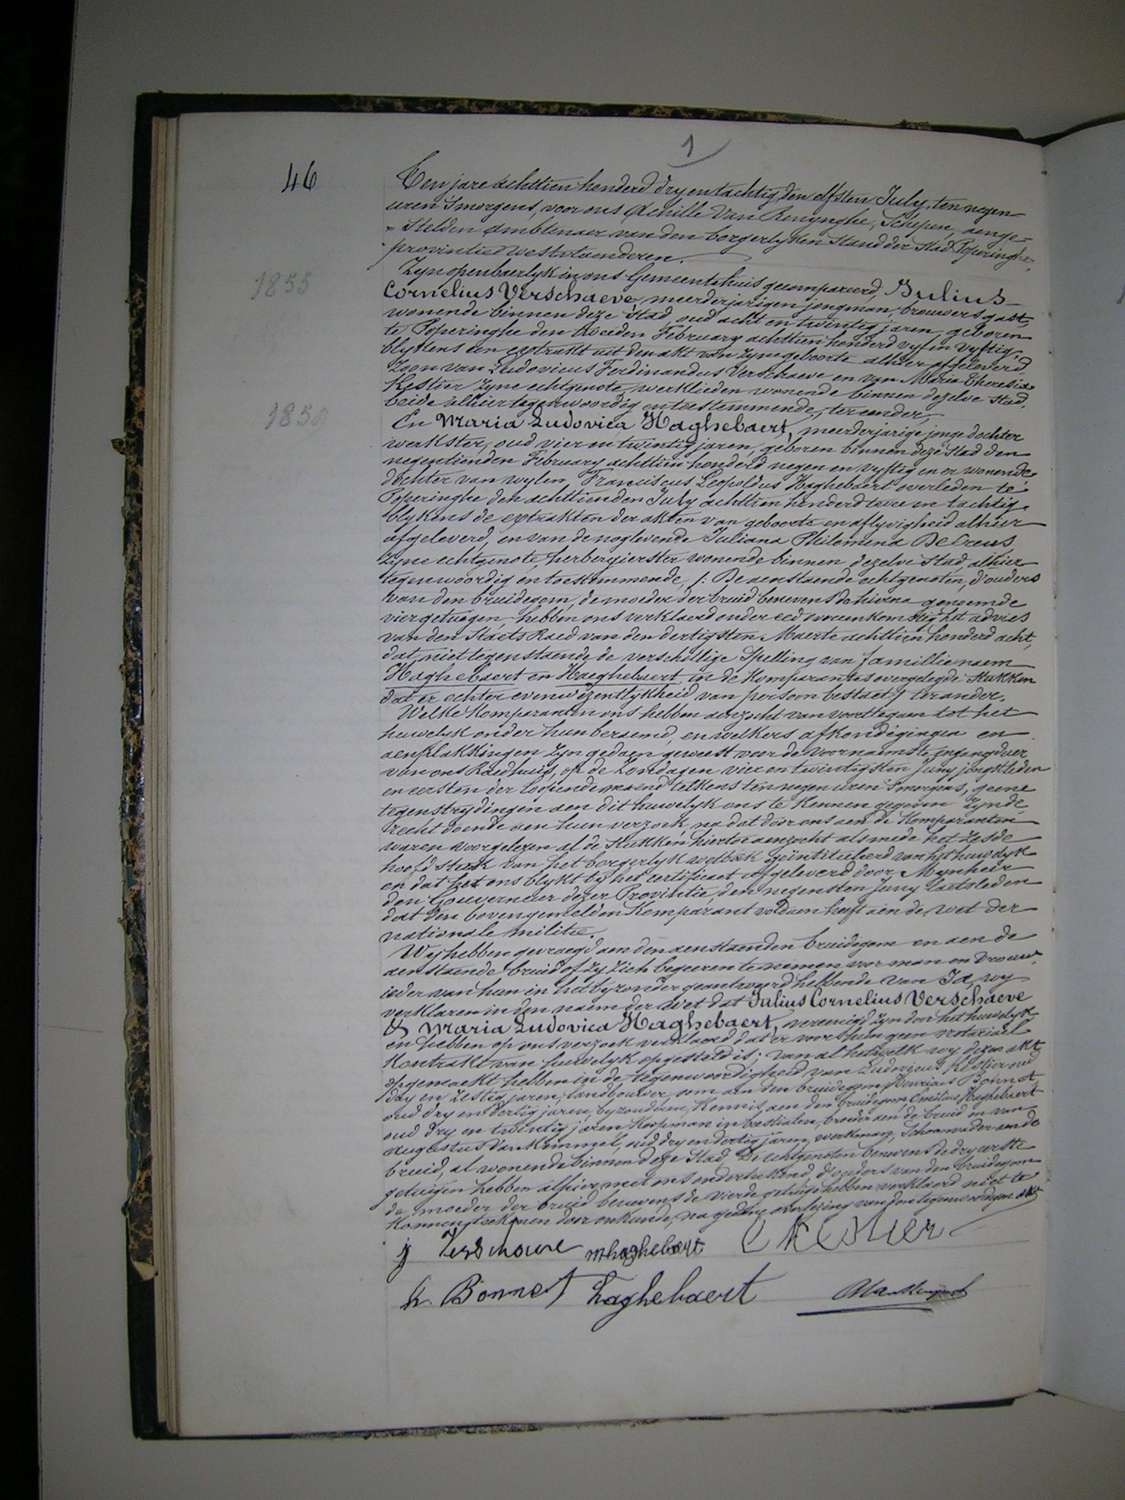 1
46
Ten jare achttien honderd dry en tachtig, den elfsten July, ten negen
uren smorgens, voor ons Achille Van Renynghe, Schepen, aenge-
stelden Ambtenaer van den borgerlyken stand der stad Poperinghe,
provintie Westvlaenderen.
Zyn openbaerlyk in ons Gemeentehuis gecompareerd, Julius
1855
Cornelius Verschaeve, meerderjarigen jongman, brouwersgast,
wonende binnen deze stad oud acht en twintig jaren, geboren
te Poperinghe den tweeden February achttien honderd vyf en vyftig,
blykens een extrakt uit den akt van zyne geboorte alhier afgeleverd
Zoon van Ludovicus Ferdinandus Verschaeve en van Maria Theresia
Kestier zyne echtgenote, werklieden wonende binnen dezelve stad,
beide alhier tegenwoordig en toestemmende, ter eender,
185
En Maria Ludovica Haghebaert, meerderjarige jonge dochter
werkster, oud vier en twintig jaren, geboren binnen deze stad den
negentienden February achttien honderd negen en vyftig en er wonende
dochter van wylen Franciscus Leopoldus Haghebaert overleden te
Poperinghe den achttienden July achttien honderd twee en tachtig,
blykens de extrakten der akten van geboorte en aflyvigheid alhier
afgeleverd, en van de noglevende Juliana Philomena Decreus
zyne echtgenote, herbergierster wonende binnen dezelve stad, alhier
tegenwoordig en toestemmende, /: De aenstaende echtgenoten, d'ouders
van den bruidegom, de moeder der bruid benevens de hierna genoemde
vier getuigen hebben ons verklaerd onder eed overeenkomstig het advies
van den Staets Raed van den dertigsten Maerte achttien honderd acht,
dat niettegenstaende de verschillige spelling van familienaem
Haghebaert en Haeghebaert in de Komparantes overgelegde stukken
dat er echter evenwezentlykheid van persoon bestaet :/ ter ander.
Welke Komparanten ons hebben aenzocht van voorttegaen tot het
huwelyk onder hun beraemd, en welkers afkondigingen en
aenplakkingen zyn gedaen geweest voor de voornaemste ingangdeur
van ons Raedhuis, op de Zondagen vier en twintigsten Juny jongstleden
en eersten der loopende maend telkens ten negen uren smorgens, geene
tegenstrydingen aen dit huwelyk ons te kennen gegeven zynde
recht doende aen hun verzoek, na dat door ons aen de Komparanten
waren voorgelezen al de stukken hiertoe aenzocht alsmede het zesde
hoofdstuk van het borgerlyk wetboek geïntituleerd van het huwelyk
en dat het ons blykt by het certificaet afgeleverd door Mynheer
den Gouverneur dezer Provintie, den negensten Juny laetstleden
dat den bovengemelden Komparant voldaen heeft aen de wet der
nationale militie.
Wy hebben gevraegd aen den aenstaenden bruidegom en aen de
aenstaende bruid of zy zich begeeren te nemen voor man en vrouw,
ieder van hun in het byzonder geantwoord hebbende van Ja, wy
verklaren in den naem der wet dat Julius Cornelius Verschaeve
& Maria Ludovica Haghebaert, vereenigd zyn door het huwelyk
en hebben op ons verzoek verklaerd dat er voor hun geen notariael
Kontrakt van huwelyk opgesteld is; van al hetwelk wy dezen akt
opgemaekt hebben in de tegenwoordigheid van Ludovicus Kestier oud
dry en zestig jaren, landbouwer, oom aen den bruidegom, Bonnet
oud dry en dertig jaren, byzondere, Kennis aen den bruidegom Emilius Haghebaert
oud dry en twintig jaren Koopman in bestialen, broeder aen de bruid en van
Augustus Van Kemmel, oud dry en dertig jaren, werkman, Schoonvader aen de
bruid, al wonende binnen deze stad. De echtgenoten benevens de dry eerste
getuigen hebben alhier met ons onderteekend, d'ouders van den bruidegom
de moeder der bruid benevens de vierde getuige hebben verklaerd niet te
konnen teekenen door onkunde, na gedane voorlezing van den tegenwoordigen akt.
j Verschaeve mhaghebaert L Kestier
h. Bonnet Haghebaert